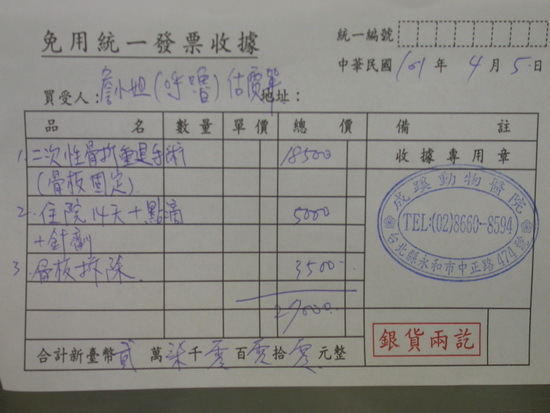 免用統一發票收據
統一編號
中華民國101年4月5日
買受人:詹小姐(呼嚕)估價單 地址:
品名 數量 單價 總價 備註
1. 二次性骨折重建手術 18500
(骨板固定)
2. 住院14天+點滴 5000
+針劑
3. 骨板拆除 3500
27000.
收據專用章
成蹊動物醫院
TEL:(02)8660-8594
台北縣永和市中正路474號
銀貨兩訖
合計新臺幣貳萬柒千零百零拾零元整